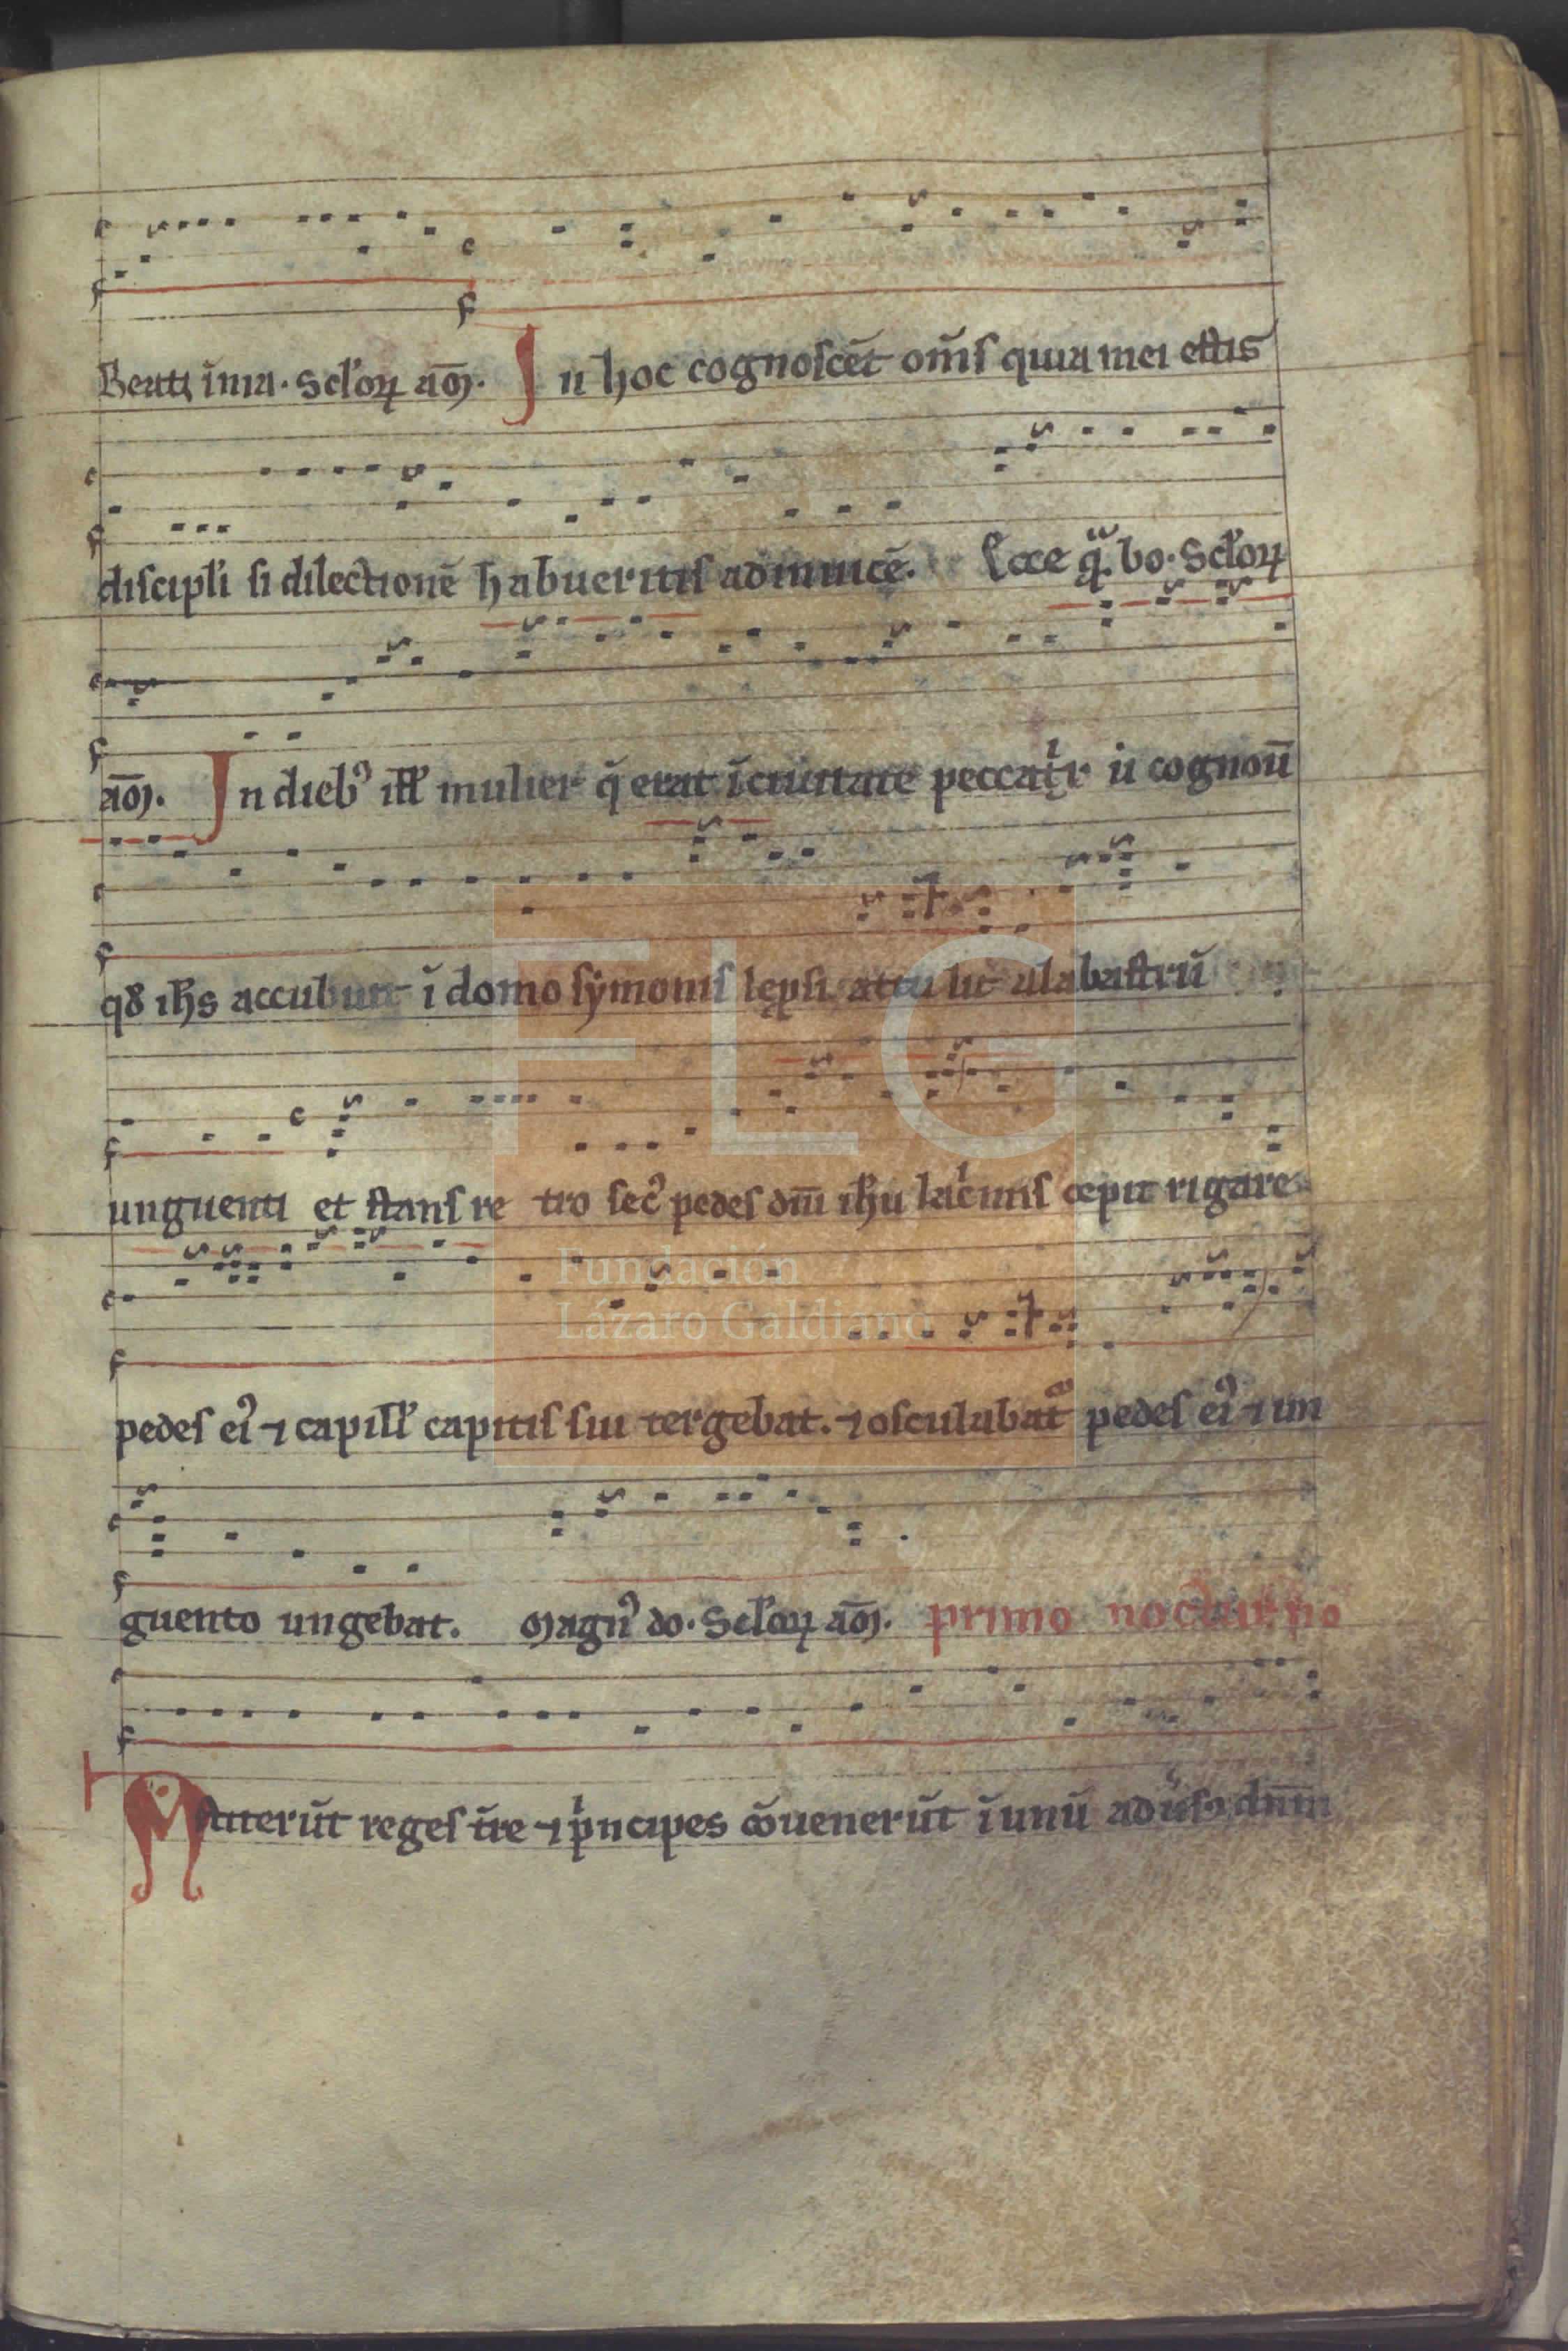 Beati i̅ma· Scl'oꝝ am̅. In hoc cognosce̅t om̅s quia mei estis
discipl'i si dilectione̅ habueritis adinuice̅. Ecce q̅ bo· Scl'oꝝ
am̅. In dieb9 ill' mulier q̅ erat i̅ ciuitate peccat'r ii cognou̅
qd ih̅s accubuit i̅ domo symonis lep̲si attulit alabastru̅
unguenti et stans retro sec9 pedes dn̅i ih̅u lac'mis cepit rigare
pedes ei9 ⁊ capill' capitis sui tergebat. ⁊ osculabat᷑ pedes ei9 ⁊ un
guento ungebat. Magn9 do· Scl'oꝝ am̅. primo nocturno
Astiteru̅t reges t̅re ⁊ p'ncipes co̅ueneru̅t i̅ unu̅ adu̅s9 dn̅m
FLG
Fundación
Lázaro Galdiano